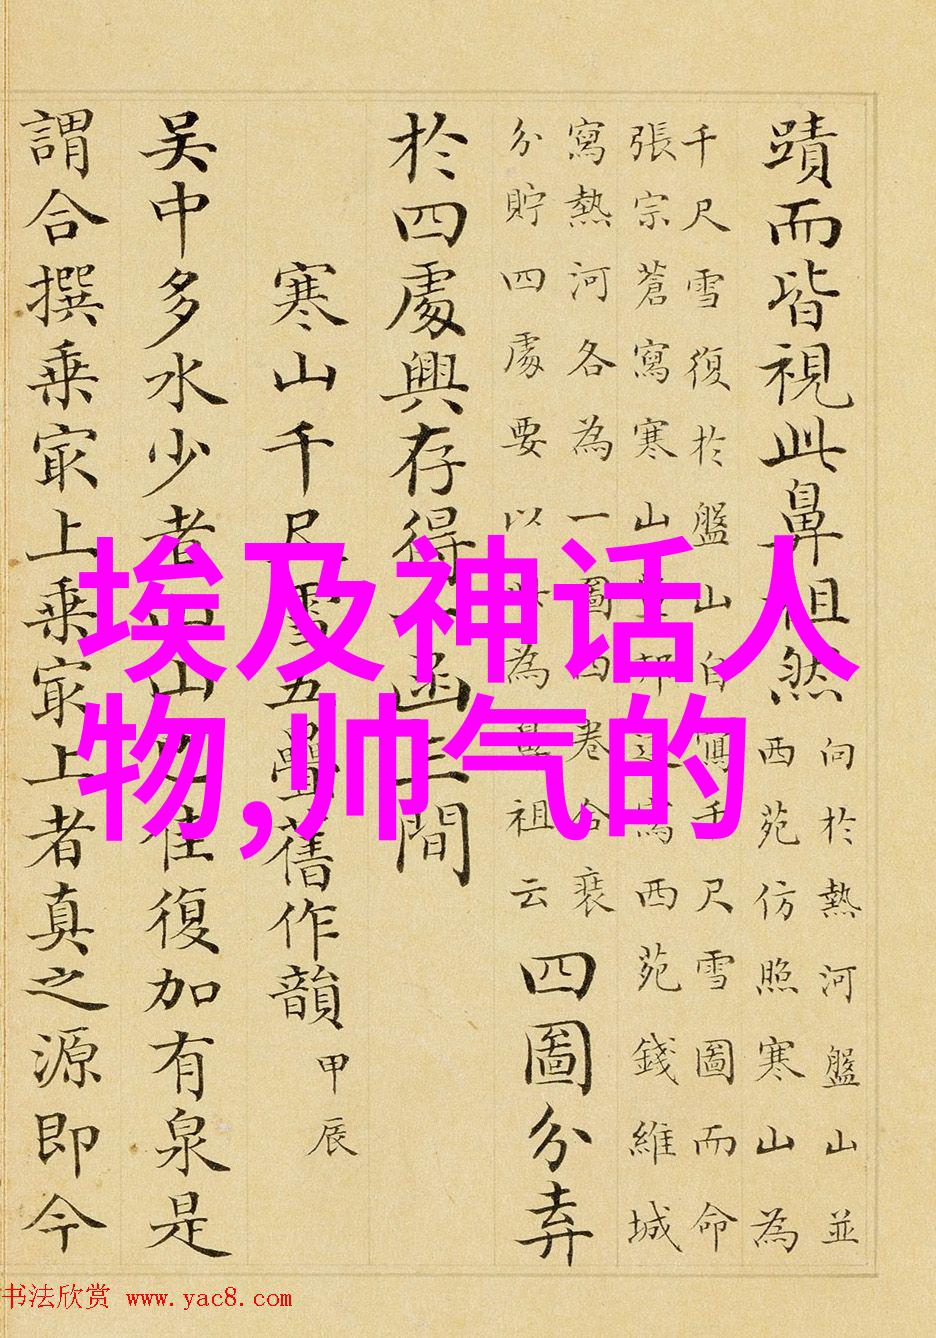 蹟而皆視此鼻祖然
向於熱河盤山並
西苑仿照寒山為
千尺雪復於盤山自寫千尺雪圖而命
張宗蒼寫寒山董邦達寫西苑錢維城
寫熱河各為一圖四卷合袠
分貯四處要以此為鼻祖云
四圖分弆
於四處興存得函三間
寒山千尺雪五疊舊作韻 甲辰
吳中多水少者山山之佳復加有泉是
謂合撰乘㝡上乘㝡上者真之源即今
埃及神话人
物,帅气的
书法欣赏 www.yac8.com